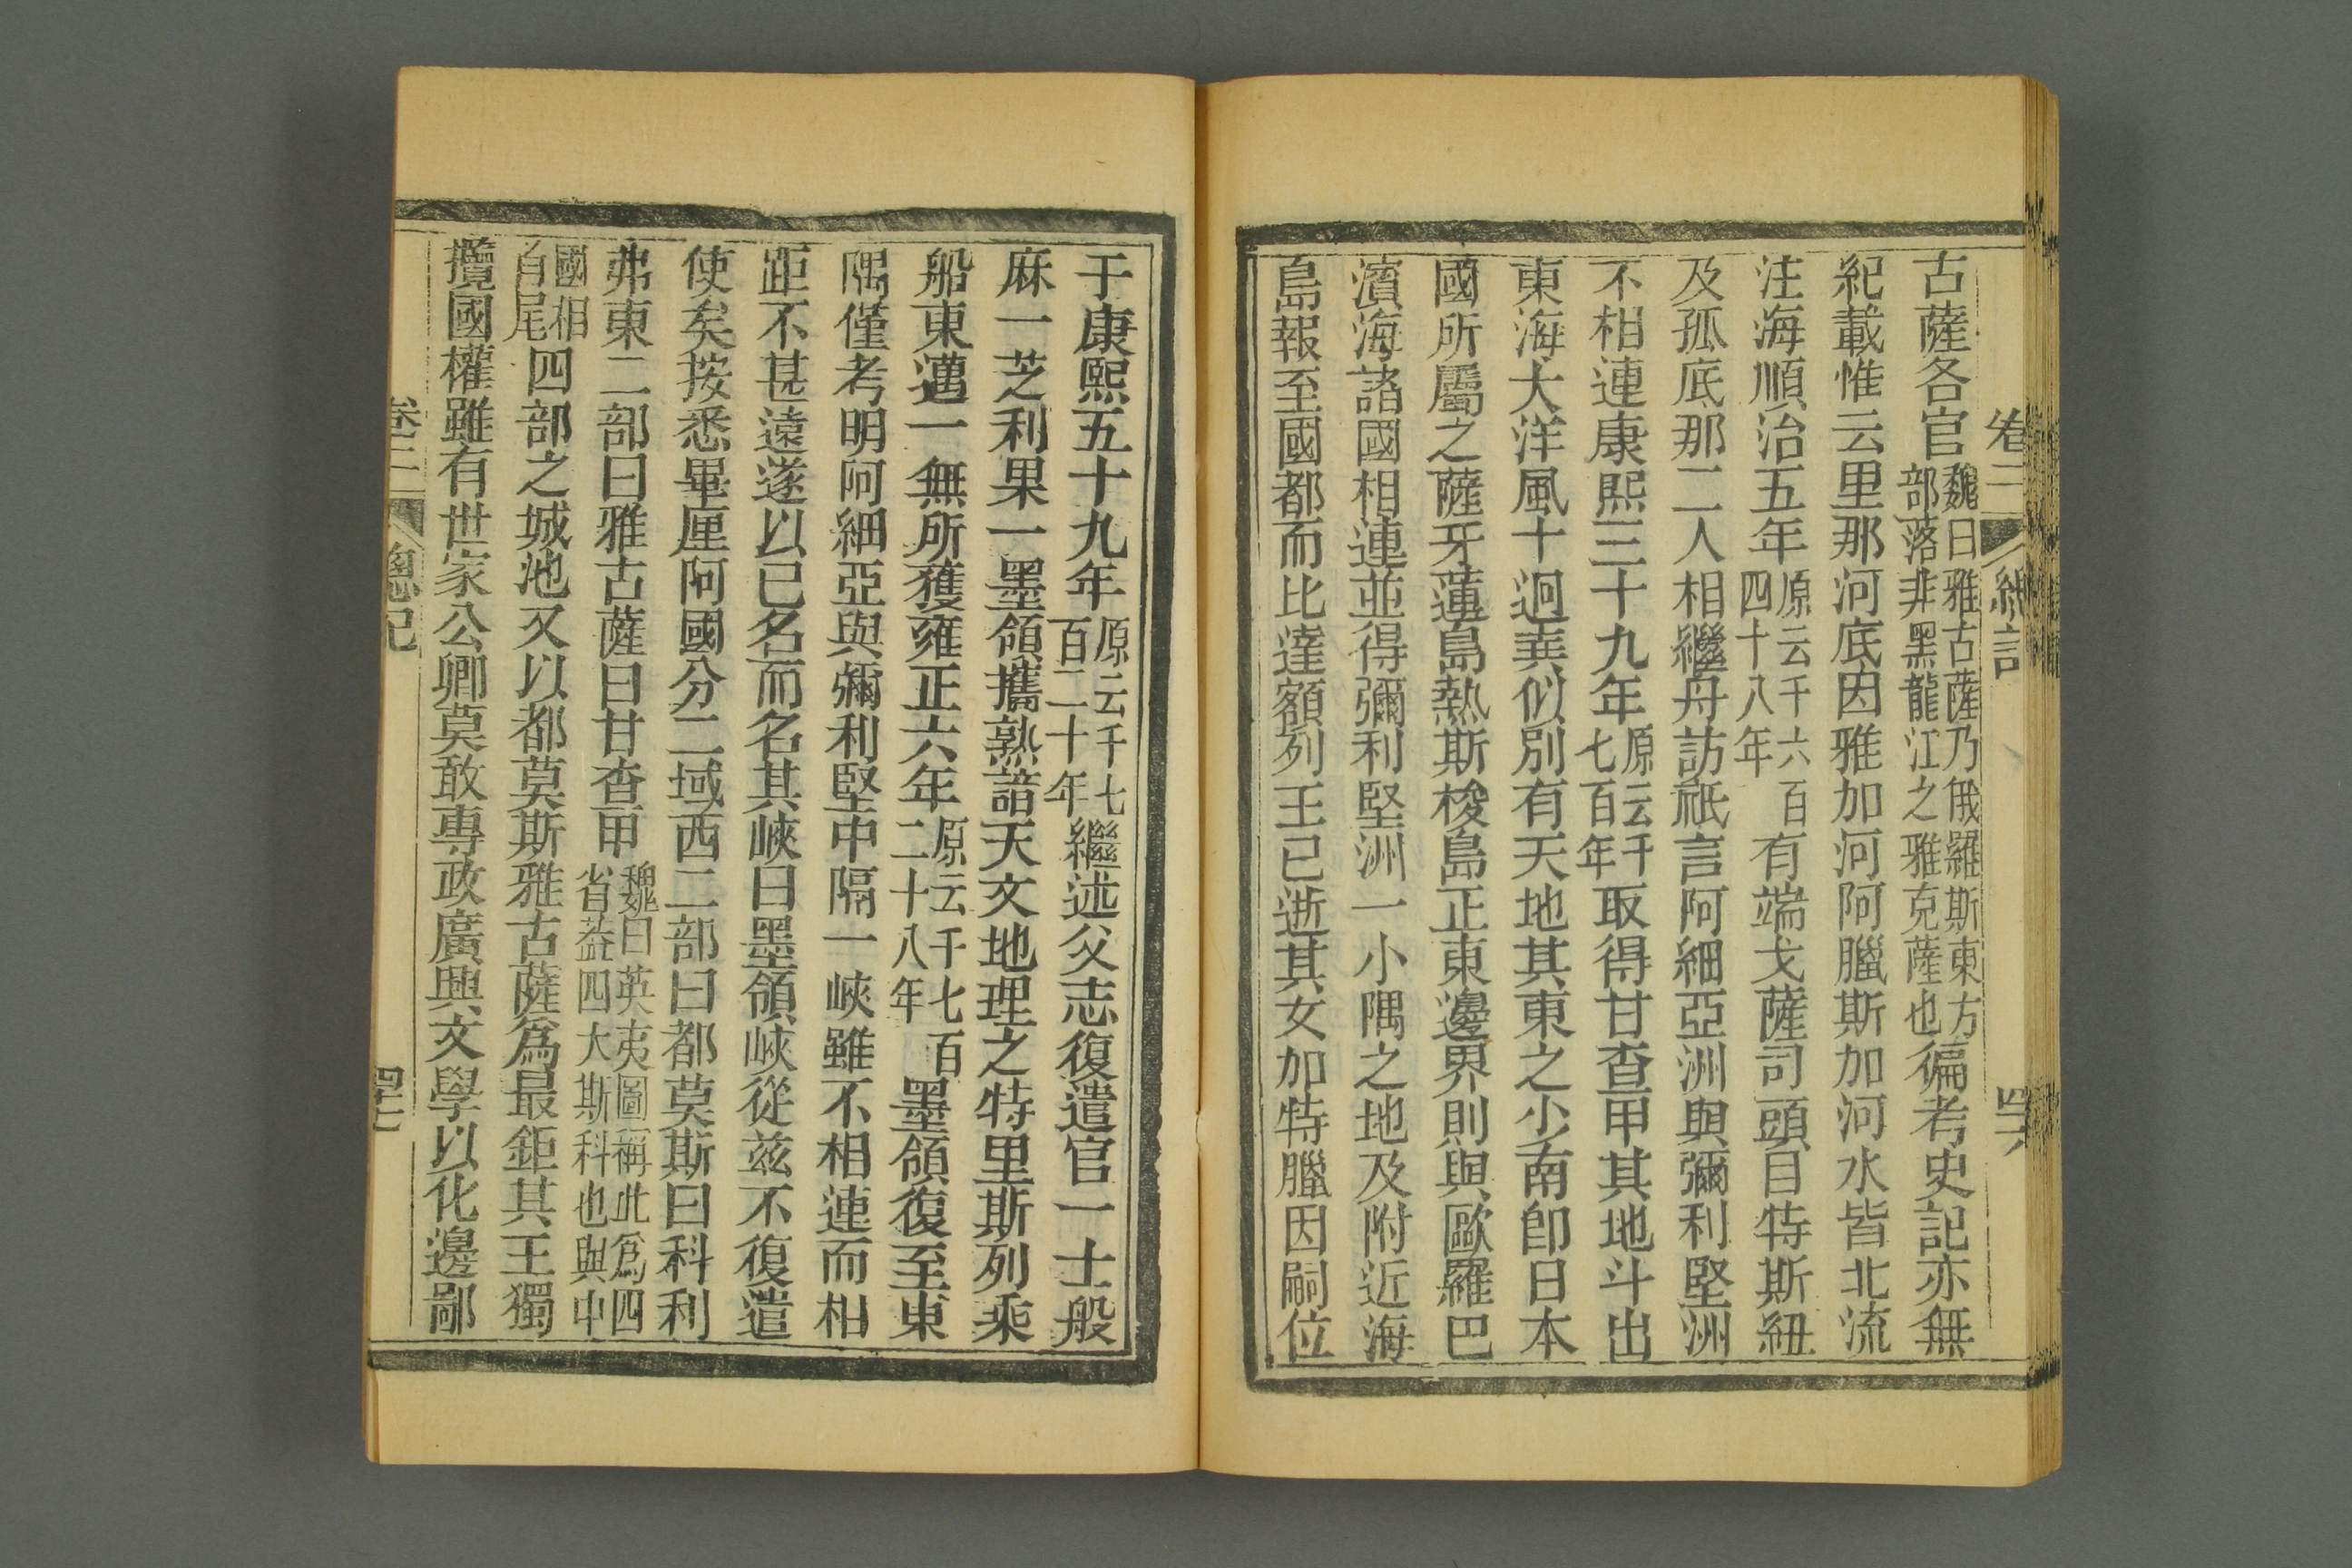 卷二 總記 四六
古薩各官魏曰雅古薩乃俄羅斯東方部落非黑龍江之雅克薩也徧考史記亦無
紀載惟云里那河底因雅加河阿臘斯加河水皆北流
注海順治五年原云千六百四十八年有端戈薩司頭目特斯紐
及孤底那二人相繼舟訪祇言阿細亞洲與彌利堅洲
不相連康熙三十九年原云千七百年取得甘查甲其地斗出
東海大洋風十迥異似別有天地其東之少南卽日本
國所屬之薩牙蓮島熱斯梭島正東邊界則與歐羅巴
濱海諸國相連並得彌利堅洲一小隅之地及附近海
島報至國都而比達額列王已逝其女加特臘因嗣位
于康熙五十九年原云千七百二十年繼述父志復遣官一士般
麻一芝利果一墨領攜熟諳天文地理之特里斯列乘
船東邁一無所獲雍正六年原云千七百二十八年墨領復至東
隅僅考明阿細亞與彌利堅中隔一峽雖不相連而相
距不甚遠遂以已名而名其峽曰墨領峽從茲不復遣
使矣按悉畢厘阿國分二域西二部曰都莫斯曰科利
弗東二部曰雅古薩曰甘查甲魏曰英夷圖稱此爲四省葢四大斯科也與中
國相首尾四部之城池又以都莫斯雅古薩爲最鉅其王獨
攬國權雖有世家公卿莫敢專政廣興文學以化邊鄙
卷二 總記 四七